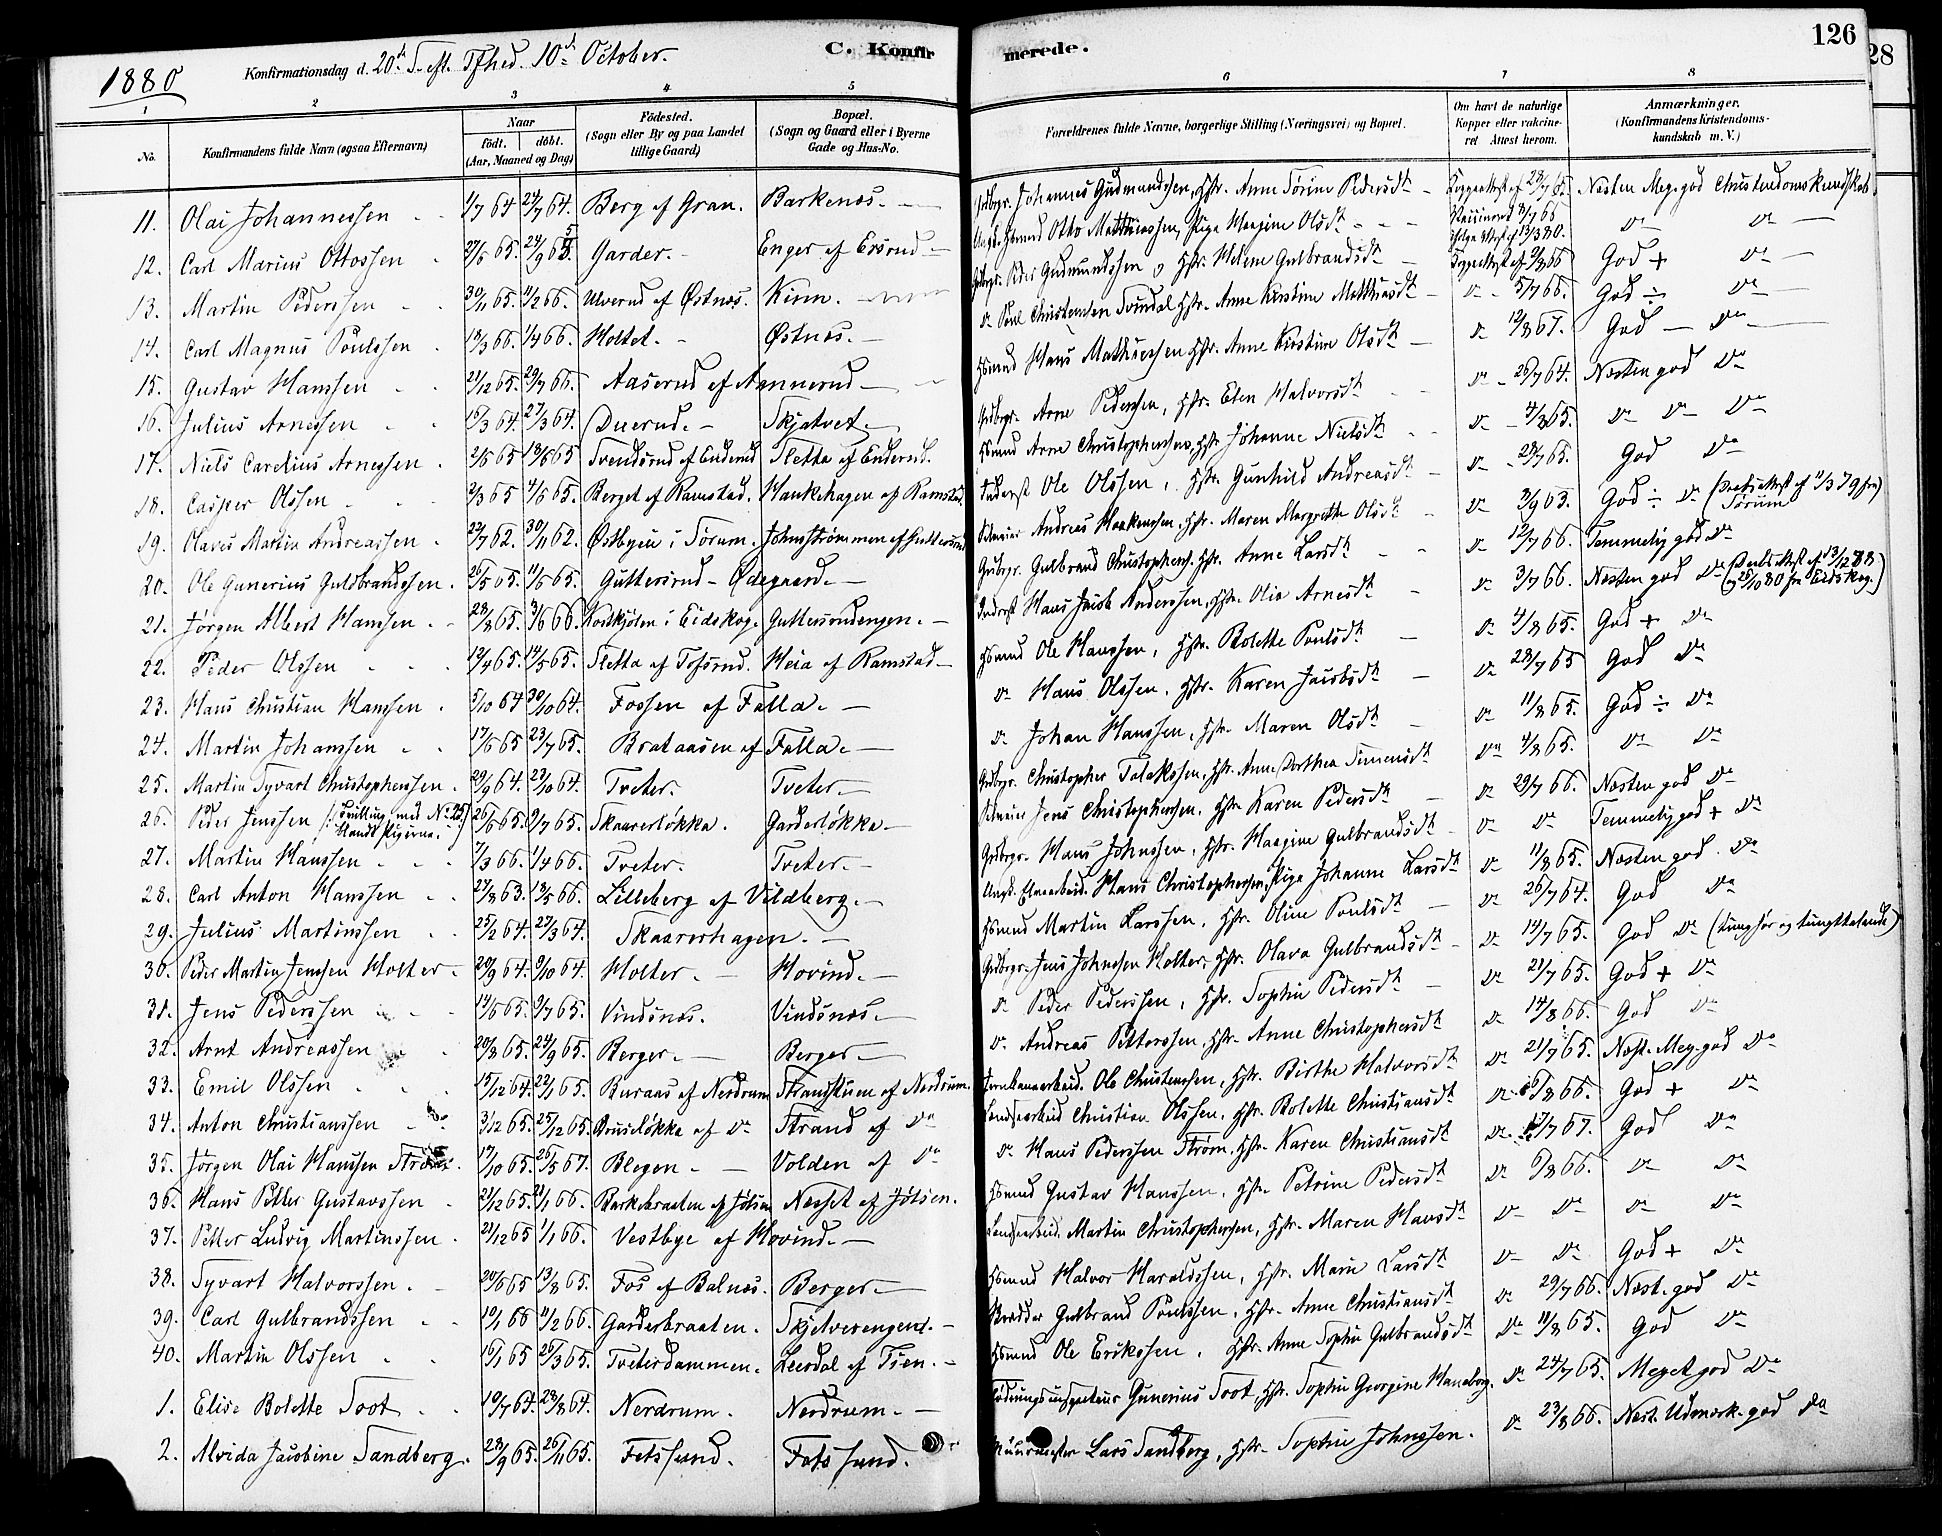 126
28
1880 Konfirmationsdag d. 20de S. eft. Tfhed. 10de October. C. Konfirmerede.
1 2 3 4 5 6 7 8
No. Konfirmandens fulde Navn (ogsaa Efternavn) Naar født. døbt. (Aar, Maaned og Dag) Fødested. (Sogn eller By og paa Landet tillige Gaard) Bopæl. (Sogn og Gaard eller i Byerne Gade og Hus-No. Forældrenes fulde Navne, borgerlige Stilling (Næringsvei) og Bopæl. Om havt de naturlige Kopper eller vakcineret Attest herom. Anmærkninger. (Konfirmandens Kristendomskundskab m. V.)
11. Olai Johannessen 1/7 64 24/7 64. Berg af Gran. Barkenæs. Gdbrgr. Johannes Gudmundssen, Hstr. Anne Sørine Pedersdt Koppeattest af 23/7 65. Næsten Meg. god Christendomskundskab
12. Carl Marius Ottossen 27/6 65. 24/9 65 Garder. Enger af Ersrud Ungk. Hsmnd Otto Matthiassen, Pige Maagine Olsdt Vaccineret 8/7 66 ifølge Attest af 13/3 80. do do
13. Martin Pederssen 30/11 65. 11/2 66. Ulverud af Østnæs. Kinn. Gdbrgr. Peder Gudmundssen og Hstr. Helene Gulbrandsdt Koppeattest af 9/8 66 God + do
14. Carl Magnus Poulssen 18/3 66. 1/4 66. Holtet. Østnæs. do Poul Christensen Svindal Hstr. Anne Kirstine Matthiasdt do 5/7 66. God ÷ do
15. Gustav Hanssen 21/12 65. 29/7 66. Aaserud af Annerud Hsmnd Hans Mathiessen Hstr. Anne Kirstine Olsdt do 12/8 67. God do
16. Julius Arnessen 16/3 64. 27/3 64. Duerud. Skjatvet. Gdbrgr. Arne Pederssen, Hstr. Eten Halvorsdt do 26/7 64. Næsten god do
17. Niels Carelius Arnessen 2/5 65 18/6 65 Svendsrud af Enderud Sletta af Enderud. Hsmnd Arne Christophersen, Hstr. Johanne Nielsdt do 4/8 65. do do do
18. Casper Olssen 2/3 65 4/6 65. Berget af Ramstad. Haukehagen af Ramstad Inderst Ole Olssen, Hstr. Gunhild Andreasdt do 28/7 65. God do
19. Olaves Martin Andreassen 22/7 62. 30/11 62. Østbyeie i Sørum. Johnsstrømmen af Guttersrud Andreas Haakenssen, Hstr. Maren Margrethe Olsdt do 3/9 63. God ÷ do (Præsteattest af 11/3 79 fra Sørum
20. Ole Gunerius Gulbrandssen. 26/5 65. 11/6 65. Guttersrud Ødegaard. Gdbrgr. Gulbrand Christophersen. Hstr. Anne Larsdt do 12/7 66. Temmelig god do
21. Jørgen Albert Hanssen 28/8 65. 3/6 66. Koskjølen i Eidskog. Guttersrudengen. Inderst Hans Jacob Anderssen, Hstr. Olia Arnesdt do 3/7 66. Næsten god do (Præsteattest af 13/12 78 og 26/10 80 fra Eidskog.)
22. Peder Olssen 12/4 65. 14/5 65. Sletta af Tofsrud. Heia af Ramstad Hsmnd Ole Hanssen, Hstr. Bolette Poulsdt do 4/8 65. God + do
23. Hans Christian Hanssen 5/10 64 30/10 64. Fossen af Falla. do Hans Olssen. Hstr. Karen Jacobsdt do 28/7 65 God do
24. Martin Johanssen 17/6 65 23/7 65. Brataasen af Falla. do Johan Hanssen, Hstr. Maren Olsdt do 11/8 65. God ÷ do
25. Martin Syvart Christophersen. 29/9 64. 23/10 64. Tveter. Tveter. Gdbrgr. Christopher Tolakssen, Hstr. Anne Dorthea Simensdt do 4/8 65. do do
26. Peder Jenssen (: Tvilling med No 25 blandt Pigerne. :) 26/6 65. 9/7 65. Skaarerløkka. Garderløkka Jens Christophersen. Hstr Karen Pedersdt do 29/7 66. Næsten god do
27. Martin Hanssen 7/3 66. 1/4 66. Tveter. Tveter. Gdbrgr. Hans Johnssen, Hstr. Maagine Gulbrandsdt do do Temmelig god + do
28. Carl Anton Hanssen 27/8 63. 13/5 66. Lilleberg af Vildberg. Ungk. Hans Christophersen, Pige Johanne Larsdt do 11/8 65. Næsten god. do
29. Julius Martinssen 25/2 64. 27/3 64. Skaarerhagen. Hsmnd Martin Larssen, Hstr. Oline Poulsdt do 26/7 64. God do
30. Peder Martin Jenssen Holter 20/9 64. 9/10 64. Holter. Hovind. Gdbrgr. Jens Johnssen Holter. Hstr. Olava Gulbrandsdt do 14/7 65. God do (tunghør og tungttalende)
31. Jens Pederssen 14/6 65. 9/7 65. Vindsnæs. Vindsnæs. do Peder Pederssen, Hstr. Sophie Pedersdt do 21/7 65. God + do
32. Arnt Andreassen 20/8 65. 24/9 65. Berger. Berger. do Andreas Petterssen, Hstr. Anne Christophersdt do 14/8 66. God do
33. Emil Olssen 15/12 64. 22/1 65. Buraas af Nerdrum Strandstuen af Nerdrum. Jernbanearbeid. Ole Christenssen, Hstr. Birthe Halvorsdt do 21/7 65. Næst. Meg. god do
34. Anton Christianssen 3/12 65. 25/12 65. Brusiløkka af do Strand af do Landsearbeid Christian Olssen. Hstr. Bolette Christiansdt do 16/8 66. God + do
35. Jørgen Olai Hanssen Strøm. 17/10 65. 26/5 67. Blegen. Volden af do do Hans Pederssen Strøm, Hstr. Karen Christiansdt do 17/7 67. God do
36. Hans Petter Gustavssen 21/12 65. 21/1 66. Barkebraaten af Jølsen Næsset af Jølsen. Hsmnd Gustav Hanssen. Hstr. Petrine Pedersdt do 6/8 66. do do
37. Petter Ludvig Martinssen 21/12 65 1/1 66. Vestbye af Hovind. Martin Christophersen, Hstr. Maren Hansdt do do do do
38. Syvart Halvorssen. 20/6 65 13/8 65. Fos af Balnæs. Berger. Hsmnd Halvor Haraldssen, Hstr. Marie Larsdt do do God + do
39. Carl Gulbrandssen 10/1 66 11/2 66. Garderbraaten. Skjelverengen. Skrædder Gulbrand Poulssen. Hstr. Anne Christiansdt do 29/7 66. Næst. god do
40. Martin Olssen 16/1 65 26/3 65. Tveterdammen. Leirdal af Tien. Hsmnd Ole Erikssen. Hstr. Anne Sophie Gulbrandsdt do 11/8 65. God do
1. Elise Bolette Soot 19/7 64. 28/8 64. Nerdrum. Nerdrum. Flødningsinspecteur Gunerius Soot, Hstr. Sophie Georgine Haneborg. do 24/7 65. Meget god do
2. Alvida Jacobine Sandberg. 28/9 65. 26/11 65. Fetssund. Fetssund. Muurmester Lars Sandberg, Hstr. Sophie Johnssen. do 23/8 66. Næst. Udmærk. god do